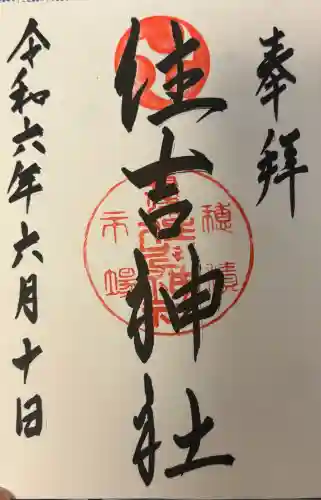 奉拝
住吉神社
令和六年六月十日